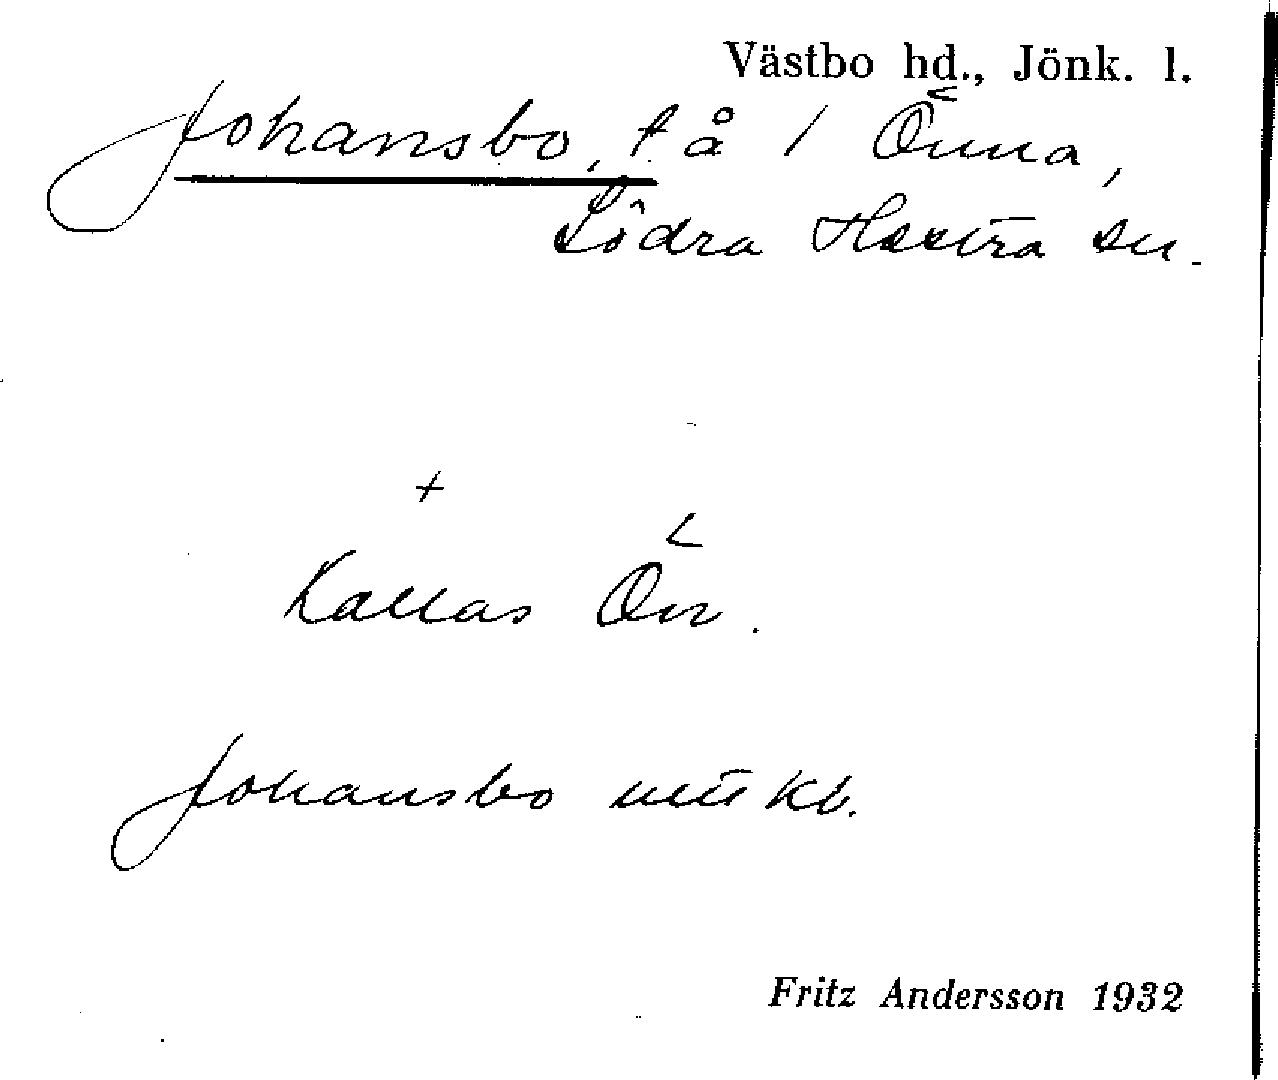 Västbo hd., Jönk. l.
Johansbo, t. å 1 Önna,
Södra Hestra sn.
Kallas Ön.
Johansbo mtl kb.
Fritz Andersson 1932